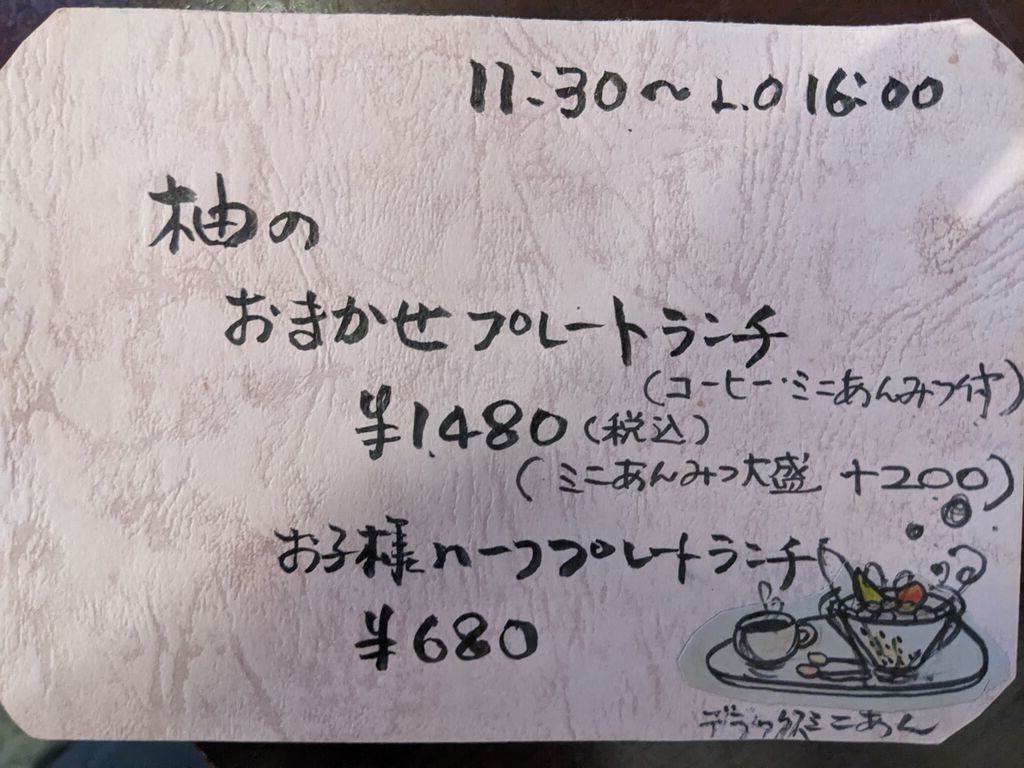 11:30〜 L.O 16:00
柚の
おまかせプレートランチ
(コーヒー・ミニあんみつ付)
¥1480(税込)
(ミニあんみつ大盛 +200)
お子様ハーフプレートランチ
¥680
デラックスミニあん